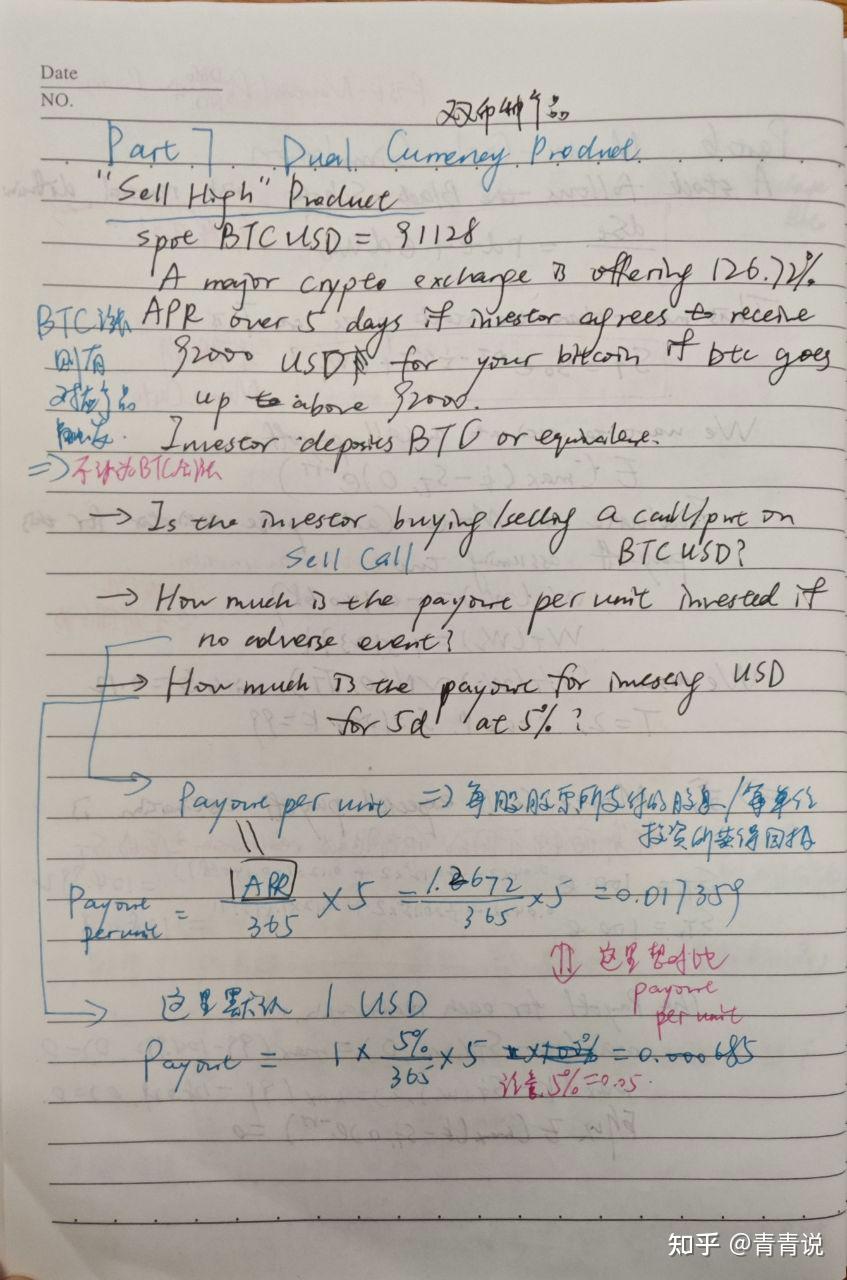 Date
NO.
双币种产品
Part 7 Dual Currency Product
"Sell High" Product
spot BTCUSD = 91128
A major crypto exchange is offering 126.72%
APR over 5 days if investor agrees to receive
92000 USD for your bitcoin if btc goes
up to above 92000.
Investor deposits BTC or equivalent.
BTC
则有
对应产品
=> 不认为BTC会涨
→ Is the investor buying/selling a call/put on
BTCUSD?
Sell Call
→ How much is the payout per unit invested if
no adverse event?
→ How much is the payout for investing USD
for 5d at 5%?
Payout per unit => 每股股票所支付的股息/每单位
投资所获得回报
Payout per unit = APR/365 × 5 = 1.2672/365 × 5 = 0.017359
这里想对比
payout
per unit
这里默认 1 USD
Payout = 1 × 5%/365 × 5 = 0.000685
注意 5%=0.05.
知乎 @青青说